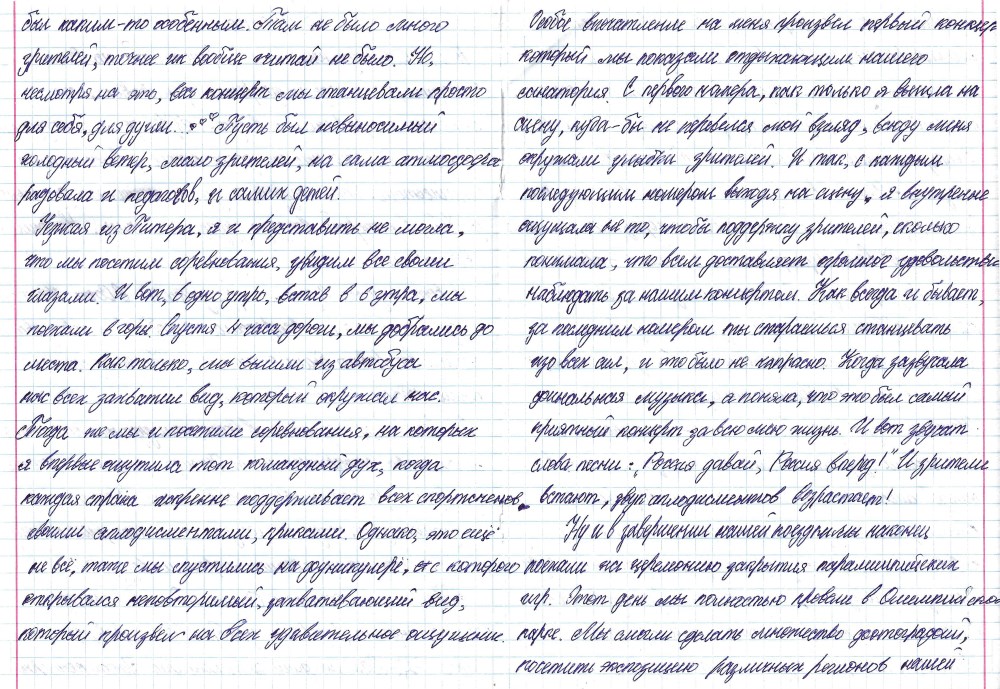 был каким-то особенным. Там не было много
зрителей, точнее их вообще считай не было. Но,
несмотря на это, весь концерт мы станцевали просто
для себя, для души... Пусть был невыносимый
холодный ветер, мало зрителей, но сама атмосфера
радовала и педагогов, и самих детей.
Уезжая из Питера, я и представить не могла,
что мы посетим соревнования, увидим все своими
глазами. И вот, в одно утро, встав в 6 утра, мы
поехали в горы. Спустя 4 часа дороги, мы добрались до
места. Как только, мы вышли из автобуса
нас всех захватил вид, который окружил нас.
Тогда же мы и посетили соревнования, на которых
я впервые ощутила тот командный дух, когда
каждая страна искренне поддерживает всех спортсменов
своими аплодисментами, криками. Однако, это ещё
не всё, также мы спустились на фуникулёре, с которого
открывался неповторимый, захватывающий вид,
который произвел на всех удивительное ощущение.
Особое впечатление на меня произвел первый концерт
который мы показали отдыхающим нашего
санатория. С первого номера, как только я вышла на
сцену, куда-бы не перевелся мой взгляд, всюду меня
окружали улыбки зрителей. И так, с каждым
последующим номером выходя на сцену, я внутренне
ощущала не то, чтобы поддержку зрителей, сколько
понимала, что всем доставляет огромное удовольствие
наблюдать за нашим концертом. Как всегда и бывает,
за последним номером ты стараешься станцевать
изо всех сил, и это было не напрасно. Когда зазвучала
финальная музыка, я поняла, что это был самый
приятный концерт за всю мою жизнь. И вот звучат
слова песни: „Россия давай, Россия вперед!" И зрители
встают, звук аплодисментов возрастает!
Ну и в завершении нашей поездки мы наконец
поехали на церемонию закрытия паралимпийских
игр. Этот день мы полностью провели в Олимпийском
парке. Мы смогли сделать множество фотографий,
посетить экспозицию различных регионов нашей